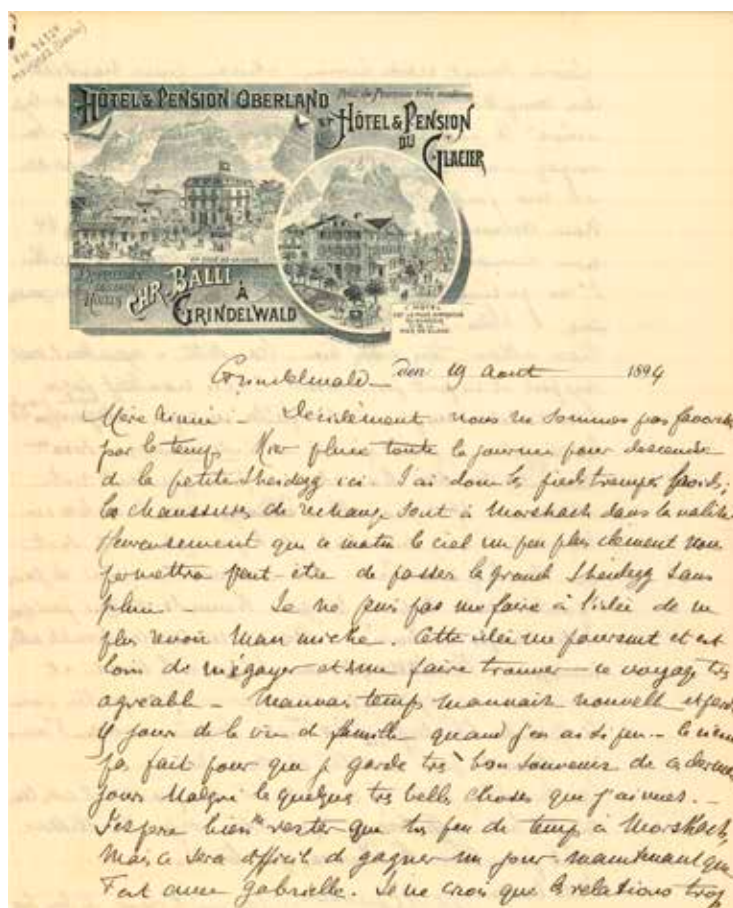 HÔTEL & PENSION OBERLAND
Prix de Pension très modérés
ET HÔTEL & PENSION
DU
GLACIER
CHR. BALLI
À
GRINDELWALD
Grindelwald den 19 Août 1894
Mère aimée - Décidément nous ne sommes pas favorisés
par le temps Hier pluie toute la journée pour descendre
de la petite Sheidegg ici J'ai donc les pieds trempés froids,
les chaussures de rechange sont à Morshach dans la valise
Heureusement que ce matin le ciel un peu plus clément nous
permettra peut-être de passer la grande Sheidegg sans
pluie - Je ne puis pas me faire à l'idée de ne
plus revoir Man miche. Cette idée me poursuit et est
loin de m'égayer et me faire trouver ce voyage très
agréable - Mauvais temps mauvaise nouvelle
jours de la vie de famille quand j'en ai si peu - ce n'est
pas fait pour que je garde très bon souvenir de ces derniers
jours Malgré les quelques très belles choses que j'ai vues. -
J'espère bien rester que très peu de temps à Morshach,
Mais ce sera difficile de gagner un jour maintenant que
Gabrielle. Je ne crois que les relations trop